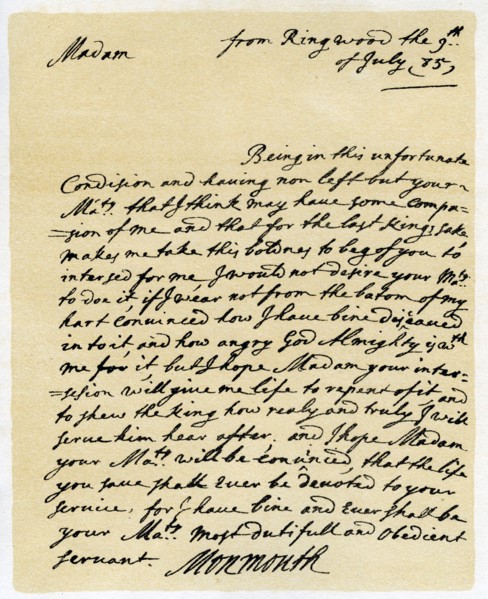 from Ringwood the 9th
Madam
of July (85)
Being in this unfortunate
Condision and having non left but your
Maty. that I think may have some compa=
=sion of me and that for the last Kings sake
makes me take this boldnes to beg of you to
intersed for me I would not desire your Maty.
to doe it if I wear not from the botom of my
hart convinced how I have bine disceaved
in to it, and how angry God Almighty is wth
me for it but I hope Madam your inter=
=sesion will give me life to repent of it and
to shew the King how realy and truly I will
serve him hear after. and I hope Madam
your Maty. will be convinced, that the life
you save shall Ever be devoted to your
service, for I have bine and Ever shall be
your Maty. most dutifull and obedient
servant. Monmouth